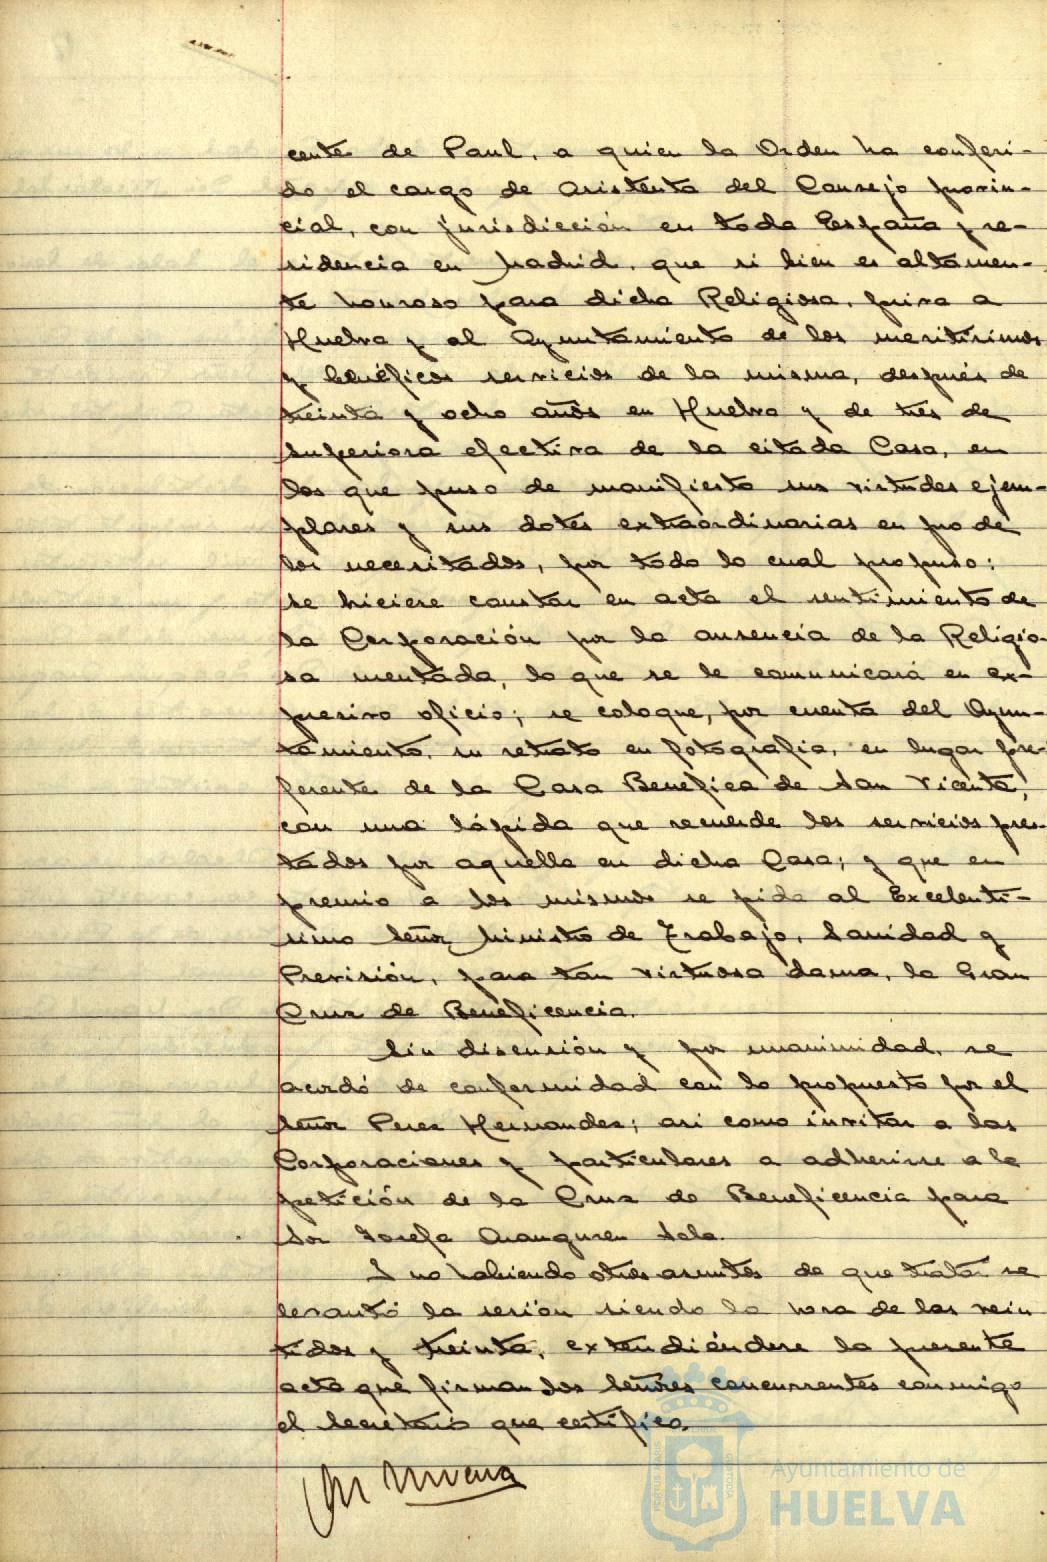 cente de Paul, a quien la Orden ha conferi-
do el cargo de Asistenta del Consejo provin-
cial, con jurisdicción en toda España y re-
sidencia en Madrid, que si bien es altamen-
te honroso para dicha Religiosa, priva a
Huelva y al Ayuntamiento de los meritísimos
y benéficos servicios de la misma, después de
treinta y ocho años en Huelva y de tres de
Superiora efectiva de la citada Casa, en
los que puso de manifiesto sus virtudes ejem-
plares y sus dotes extraordinarias en pro de
los necesitados, por todo lo cual propuso:
se hiciere constar en acta el sentimiento de
la Corporación por la ausencia de la Religio-
sa mentada, lo que se le comunicará en ex-
presivo oficio; se coloque, por cuenta del Ayun-
tamiento, su retrato en fotografia, en lugar pre-
ferente de la Casa Benefica de San Vicente,
con una lápida que recuerde los servicios pres-
tados por aquella en dicha Casa; y que en
premio a los mismos se pida al Excelenti-
simo Señor Ministro de Trabajo, Sanidad y
Previsión, para tan virtuosa dama, la Gran
Cruz de Beneficencia.
Sin discusión y por unanimidad, se
acordó de conformidad con lo propuesto por el
Señor Perez Hernandez; asi como invitar a las
Corporaciones y particulares a adherirse a la
petición de la Cruz de Beneficencia para
Sor Josefa Aranguren Sala.
I no habiendo otros asuntos de que tratar se
levantó la sesión siendo la hora de las vein
tidos y treinta, extendiéndose la presente
acta que firman los Señores concurrentes conmigo
el Secretario que certifico.
Ayuntamiento de
HUELVA